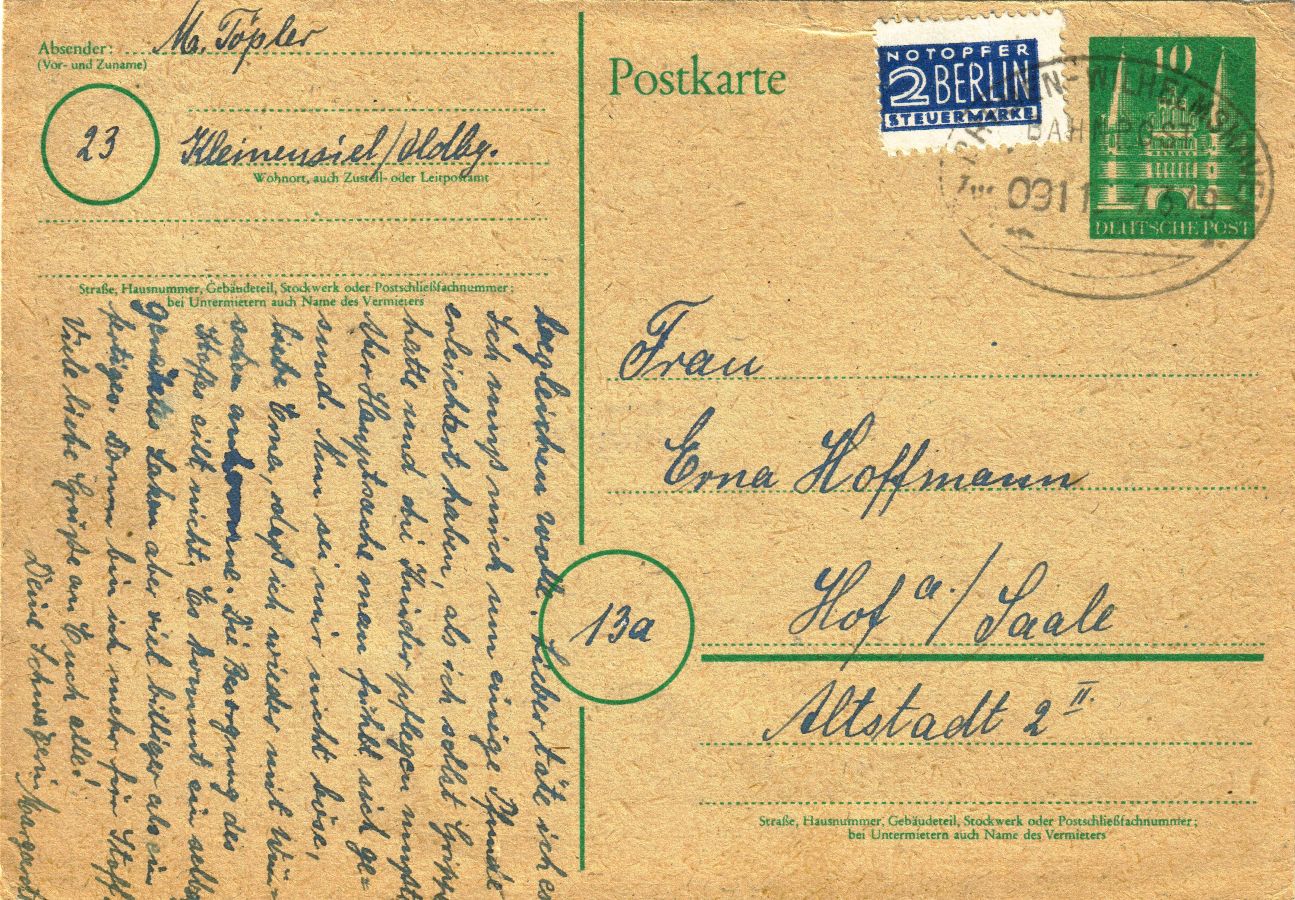 Absender: M. Töpler
(Vor- und Zuname)
23
Kleinensiel/Oldbg.
Wohnort, auch Zustell- oder Leitpostamt
Straße, Hausnummer, Gebäudeteil, Stockwerk oder Postschließfachnummer;
bei Untermietern auch Name des Vermieters
Postkarte
NOTOPFER
2 BERLIN
STEUERMARKE
10
DEUTSCHE POST
WILHELMSHAVEN
BAHNPOST
0911
7.6.49
Frau
Erna Hoffmann
13a
Hof a/Saale
Altstadt 2 II.
Straße, Hausnummer, Gebäudeteil, Stockwerk oder Postschließfachnummer;
bei Untermietern auch Name des Vermieters
wollt. Lieber täte ich es
Ich muß mich um einige Pfunde
erleichtert haben, als ich selbst Grippe
hatte und die Kinder pflegen mußte
Aber Hauptsache man fühlt sich ge-
sund. Nun sei mir nicht böse,
liebe Erna, daß ich wieder mit Wün-
schen ankomme. Die Besorgung des
Stoffes eilt nicht. Es kommt ein selbst
genähtes Laken aber viel billiger als ein
fertiges. Darum bin ich mehr für Stoff.
Viele liebe Grüße an Euch alle!
Deine Schwägerin Margarete